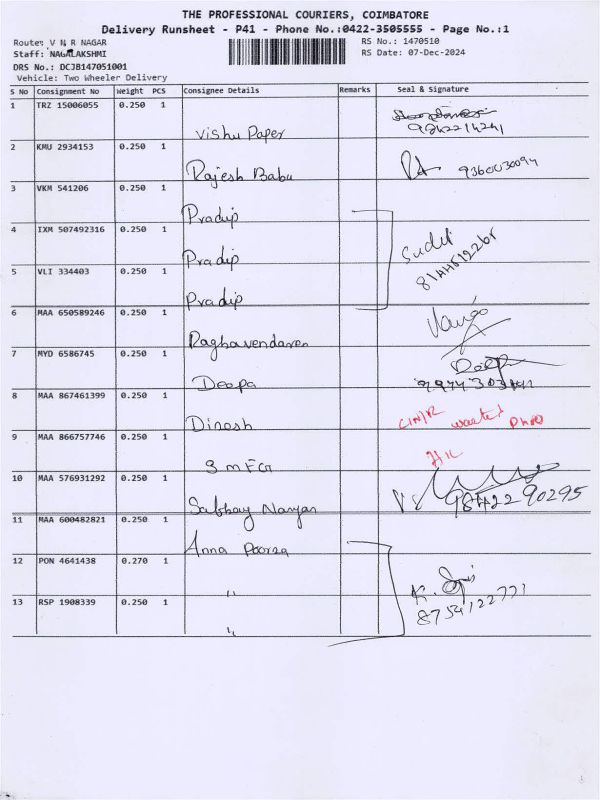 THE PROFESSIONAL COURIERS, COIMBATORE
Delivery Runsheet - P41 - Phone No.:0422-3505555 - Page No.:1
Route: V N R NAGAR
RS No.: 1470510
Staff: NAGALAKSHMI
RS Date: 07-Dec-2024
DRS No.: DCJB147051001
Vehicle: Two Wheeler Delivery
S No Consignment No Weight PCS Consignee Details Remarks Seal & Signature
1 TRZ 15006055 0.250 1
Vishu Paper
2 KMU 2934153 0.250 1
Rajesh Babu
3 VKM 541206 0.250 1
Pradip
4 IXM 507492316 0.250 1
Pradip
5 VLI 334403 0.250 1
Pradip
6 MAA 650589246 0.250 1
Raghavendaren
7 MYD 6586745 0.250 1
Deepa
8 MAA 867461399 0.250 1
Dinesh
9 MAA 866757746 0.250 1
10 MAA 576931292 0.250 1
98422 90295
11 MAA 600482821 0.250 1
Anna Poorna
12 PON 4641438 0.270 1
"
8754122771
13 RSP 1908339 0.250 1
"